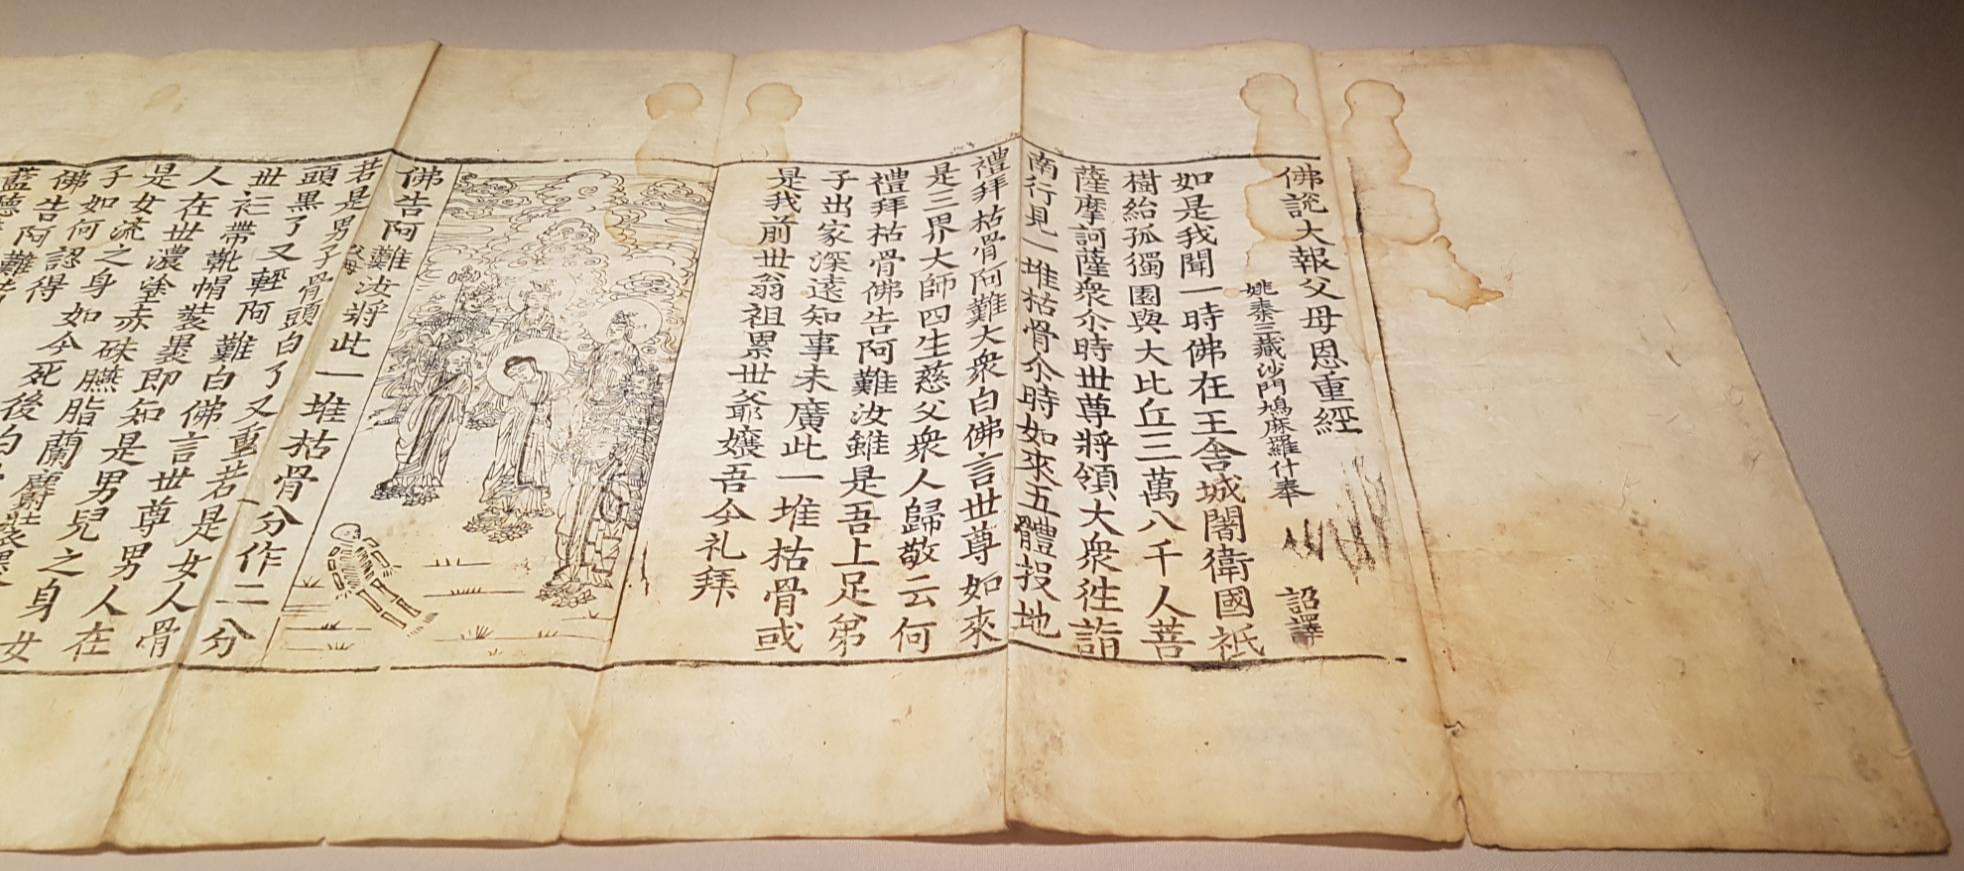 佛說大報父母恩重經
姚秦三藏沙門鳩麻羅什奉 詔譯
如是我聞一時佛在王舍城闍衛國祇
樹給孤獨園與大比丘三萬八千人菩
薩摩訶薩衆尒時世尊將領大衆徃詣
南行見一堆枯骨尒時如來五體投地
禮拜枯骨阿難大衆白佛言世尊如來
是三界大師四生慈父衆人歸敬云何
禮拜枯骨佛告阿難汝雖是吾上足弟
子出家深遠知事未廣此一堆枯骨或
是我前世翁祖累世爺孃吾今礼拜
佛告阿難汝將此一堆枯骨分作二分
若是男子骨頭白了又重若是女人骨
頭黑了又輕阿難白佛言世尊男人在
世衫帶靴帽裝裹即知是男兒之身女
人在世濃塗赤硃臙脂蘭麝裝裹
是女流之身如今死後白
子如何認得
佛告阿難若
藍聽